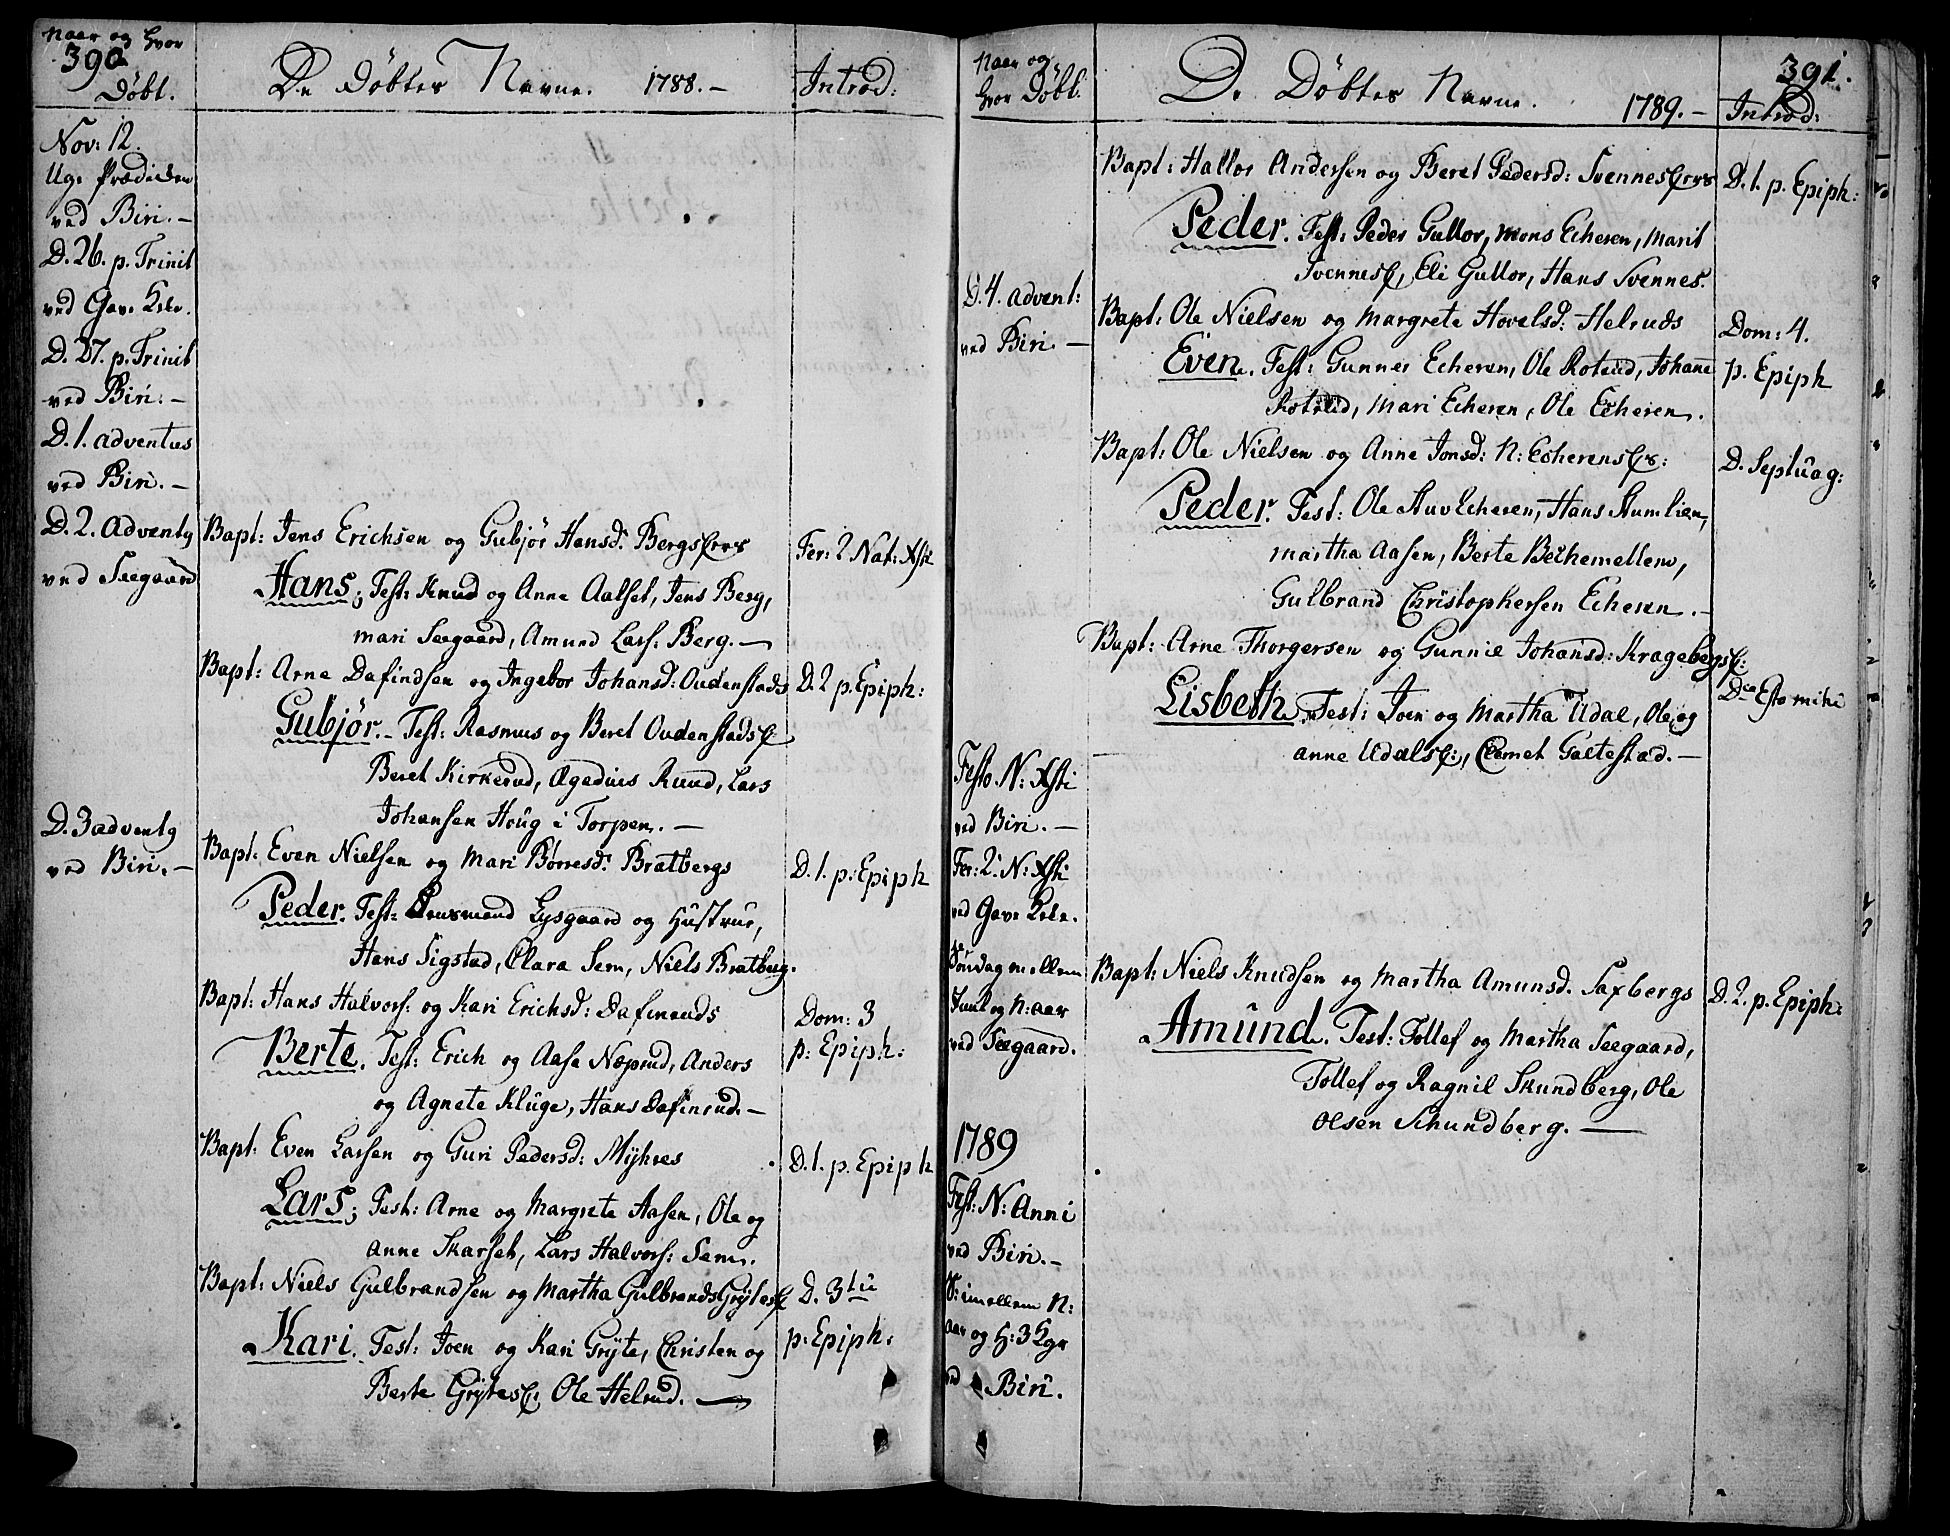 Naar og hvor
390
Døbt.
De Døbtes Navne. 1788.-
Introd:
Nov: 12.
Uge Prædiken
ved Biri.-
D. 26. p. Trinit
ved Gav: Kele.
D. 27. p. Trinit
ved Biri:-
D. 1. adventus
ved Biri.-
D. 2. advent9
ved Seegaard
Bapt: Jens Erichsen og Gubjør Hansd: Bergs
Fer: 2 Nat: Xsti
Hans; Test: Knud og Anne Aalset, Jens Berg,
Mari Seegaard, Amund Lars: Berg.-
Bapt: Arne Dafindsen og Ingebor Johansd: Oudenstads
D. 2 p. Epiph:
Gubjør.- Test: Rasmus og Beret Oudenstads
Beret Kirkerud, Ægedius Ruud, Lars
Johansen Houg i Torpen.-
D. 3 advent9
ved Biri.-
Bapt: Even Nielsen og Mari Børresd: Bratbergs
D. 1. p: Epiph
Peder. Test: Lensmand Lysgaard og Hustrue,
Hans Sigstad, Clara Sem, Niels Bratberg.
Bapt: Hans Halvors: og Kari Erichsd: Dafinruds
Dom: 3
p: Epiph:
Berte. Test: Erich og Aase Næprud, Anders
og Agnete Kluge, Hans Dafinrud.-
Bapt: Even Larsen og Guri Pedersd: Myhres
D. 1. p. Epiph
Lars; Test: Arne og Margrete Aasen, Ole og
Anne Skarset, Lars Halvors: Sem.
Bapt: Niels Gulbrandsen og Martha Gulbrands Grÿtes
D. 3tiu
p: Epiph:
Kari. Test: Joen og Kari Grÿte, Christen og
Berte Grÿtes Ole Helrud.-
Naar og
hvor Døbt.
De Døbtes Navne. 1789.-
391.
Introd:
Bapt: Hallor Andersen og Beret Pedersd: Svennes
D. 1. p. Epiph:
Peder. Test: Peder Gullor, Mons Echeren, Marit
Svennes, Eli Gullor, Hans Svennes.
D. 4. advent:
ved Biri.-
Bapt: Ole Nielsen og Margrete Hovelsd: Helruds
Dom: 4.
p. Epiph
Even. Test: Gunner Echeren, Ole Roterud, Johane
Roterud, Mari Echeren, Ole Echeren.
Bapt: Ole Nielsen og Anne Jonsd: N: Echerens
D. Septuag:
Peder. Test: Ole Stuv Echeren, Hans Stumlien,
Martha Aasen, Berte Bechemellem,
Gulbrand Christophersen Echeren.-
Bapt: Arne Thorgersen og Gunnil Johansd: Kragebergs
Dca Esto mihi
Lisbeth. Test: Joen og Martha Udal, Ole og
Anne Udals, Clemet Galtestad.-
Festo. N: Xsti
ved Biri.-
Fer: 2. N: Xsti
ved Gav: Kele.
Søndag mellem
Juul og N: aar
ved Seegaard.
Bapt: Niels Knudsen og Martha Amunsd. Saxbergs
D. 2. p. Epiph:
Amund. Test: Tollef og Martha Seegaard,
Tollef og Ragnil Skundberg, Ole
Olsen Schundberg.-
1789
Fest: N: Anni
ved Biri.-
S: imellem N:
aar og H: 3 Kgr
ved Biri.